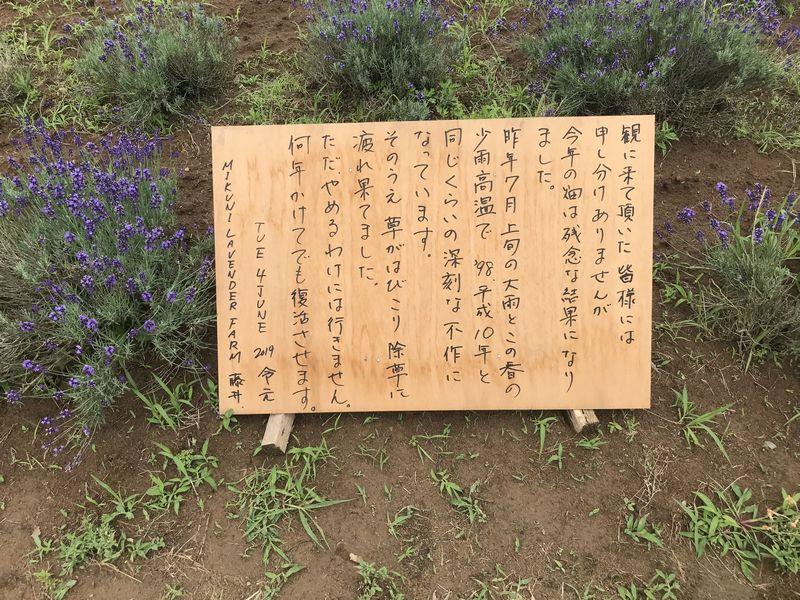 観に来て頂いた皆様には
申し分けありませんが
今年の畑は残念な結果になり
ました。
昨年7月上旬の大雨とこの春の
少雨高温で '98、平成10年と
同じくらいの深刻な不作に
なっています。
そのうえ草がはびこり除草に
疲れ果てました。
ただやめるわけには行きません。
何年かけてでも復活させます。
TUE 4 JUNE 2019 令元
MIKUNI LAVENDER FARM 藤井.